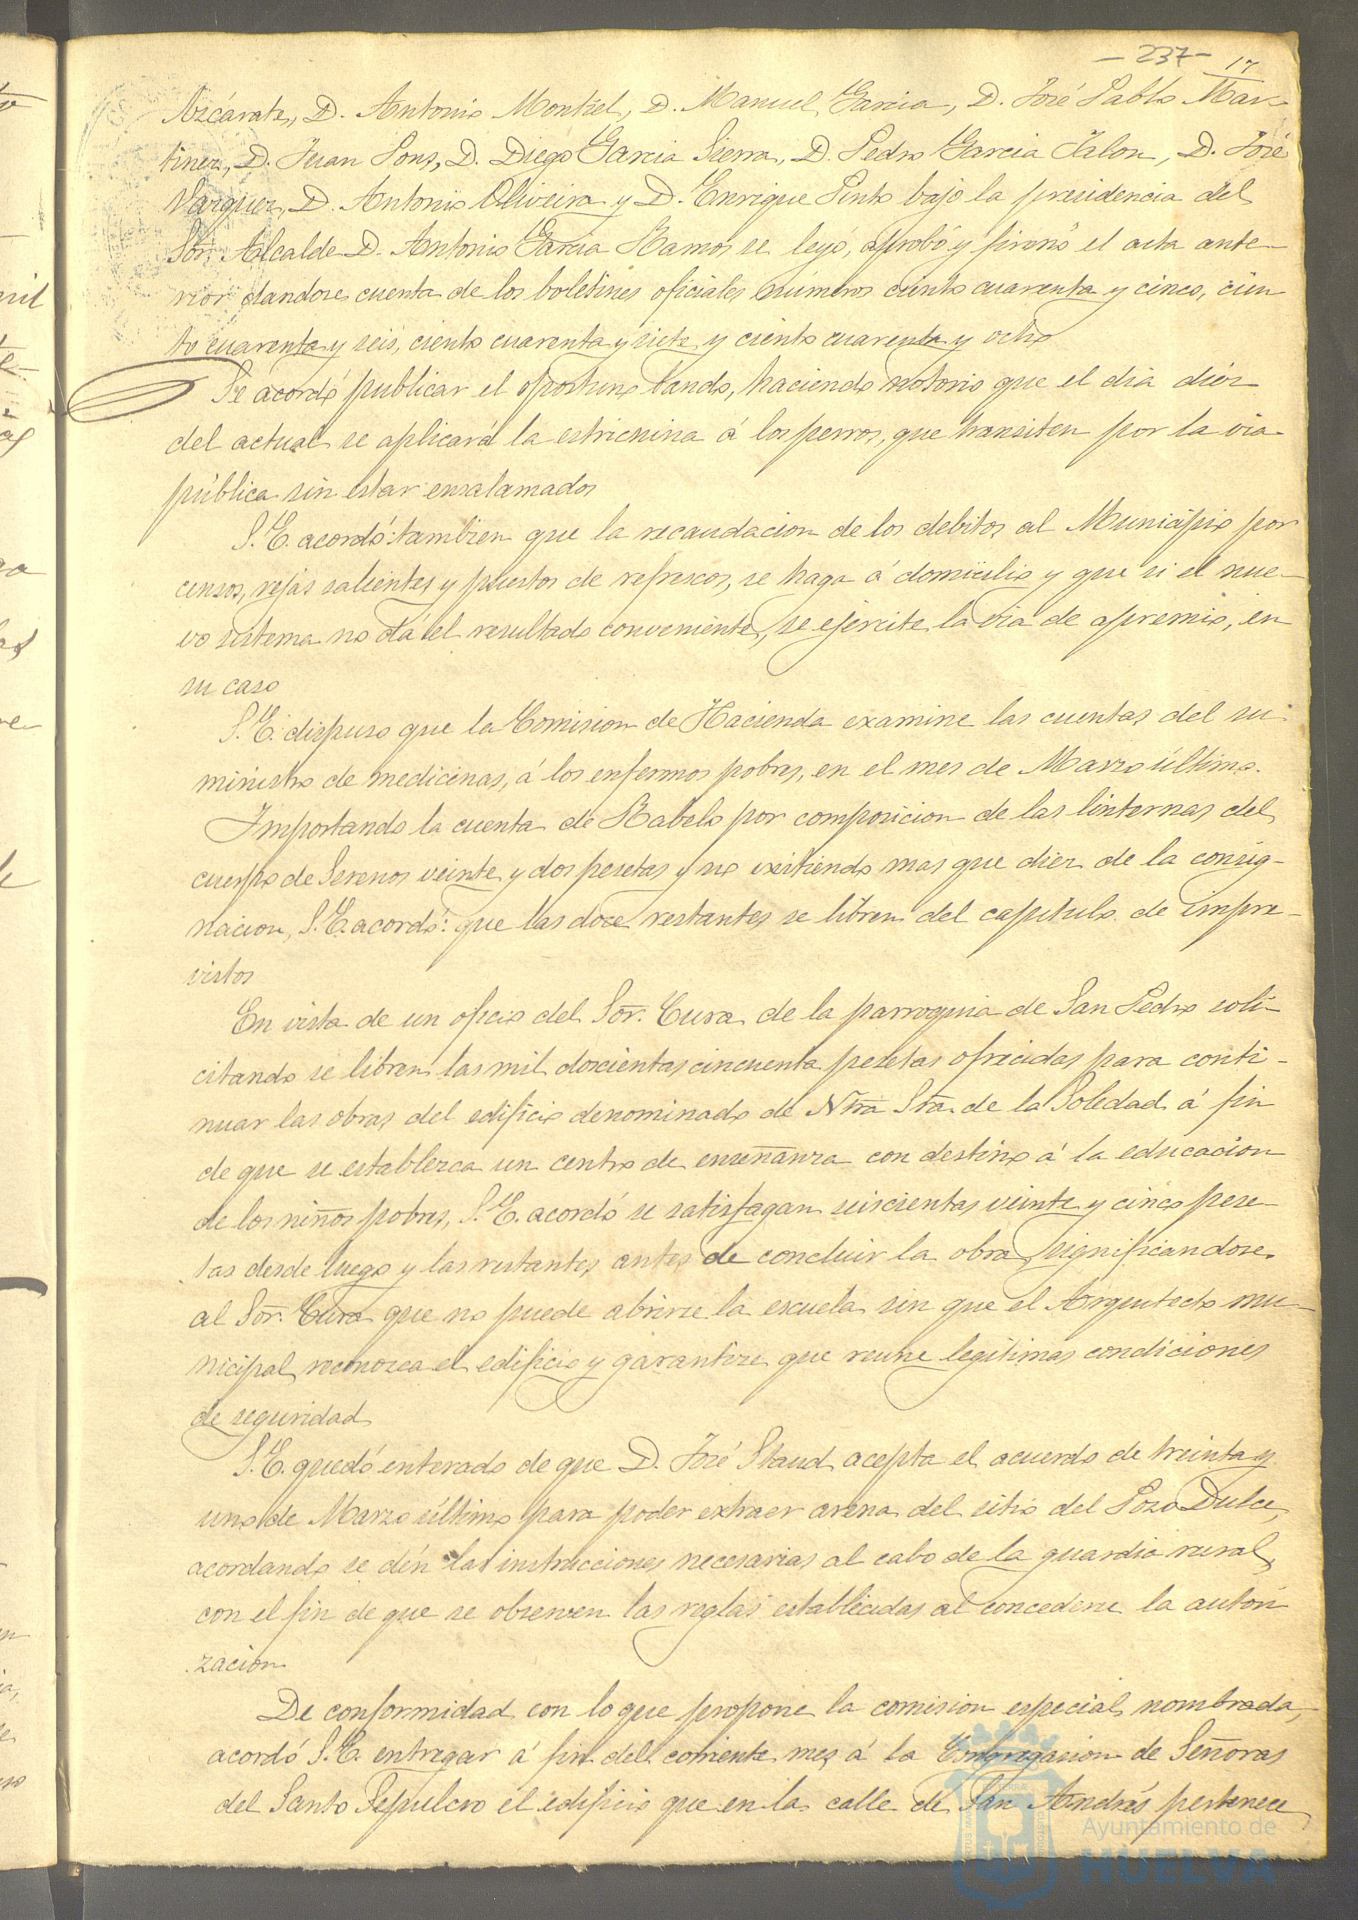 - 237 - 17
Azcárate, D. Antonio Montiel, D. Manuel Garcia, D. José Pablo Mar-
tinez, D. Juan Pons, D. Diego Garcia Sierra, D. Pedro Garcia Jalon, D. José
Vazquez, D. Antonio Oliveira y D. Enrique Pinto bajo la presidencia del
Sor. Alcalde D. Antonio Garcia Ramos se leyó, aprobó y firmó el acta ante-
rior dandose cuenta de los boletines oficiales números ciento cuarenta y cinco, cien
to cuarenta y seis, ciento cuarenta y siete y ciento cuarenta y ocho
Se acordó publicar el oportuno bando, haciendo notorio que el dia diez
del actual se aplicará la estricnina á los perros, que transiten por la via
pública sin estar enzalamados
S. E. acordó: tambien que la recaudacion de los debitos al Municipio por
censos, rejas salientes y puestos de refrescos, se haga á domicilio y que si el nue-
vo sistema no dá el resultado conveniente, se ejercite la via de apremio, en
su caso
S. E. dispuso que la Comision de Hacienda examine las cuentas del su
ministro de medicinas, á los enfermos pobres, en el mes de Marzo último.
Importando la cuenta de Rabelo por composicion de las linternas del
cuerpo de Serenos veinte y dos pesetas y no existiendo mas que diez de la consig-
nacion, S. E. acordó: que las doce restantes se libren del capitulo de impre-
vistos
En vista de un oficio del Sor. Cura de la parroquia de San Pedro soli-
citando se libren las mil doscientas cincuenta pesetas ofrecidas para conti-
nuar las obras del edificio denominado de Ntra Sra. de la Soledad á fin
de que se establezca un centro de enseñanza con destino á la educacion
de los niños pobres, S. E. acordó se satisfagan seiscientas veinte y cinco pese-
tas desde luego y las restantes antes de concluir la obra, significandose
al Sor. Cura que no puede abrirse la escuela sin que el Arquitecto mu-
nicipal reconozca el edificio y garantize que reune legitimas condiciones
de seguridad
S. E. quedó enterado de que D. José Staud acepta el acuerdo de treinta y
uno de Marzo último para poder extraer arena del sitio del Pozo Dulce,
acordando se dén las instrucciones necesarias al cabo de la guardia rural,
con el fin de que se observen las reglas establecidas al concederse la autori
zacion
De conformidad con lo que propone la comision especial nombrada,
acordó S. E. entregar á fin del corriente mes á la Congregacion de Señoras
del Santo Sepulcro el edificio que en la calle de San Andrés pertenece
Ayuntamiento de
HUELVA